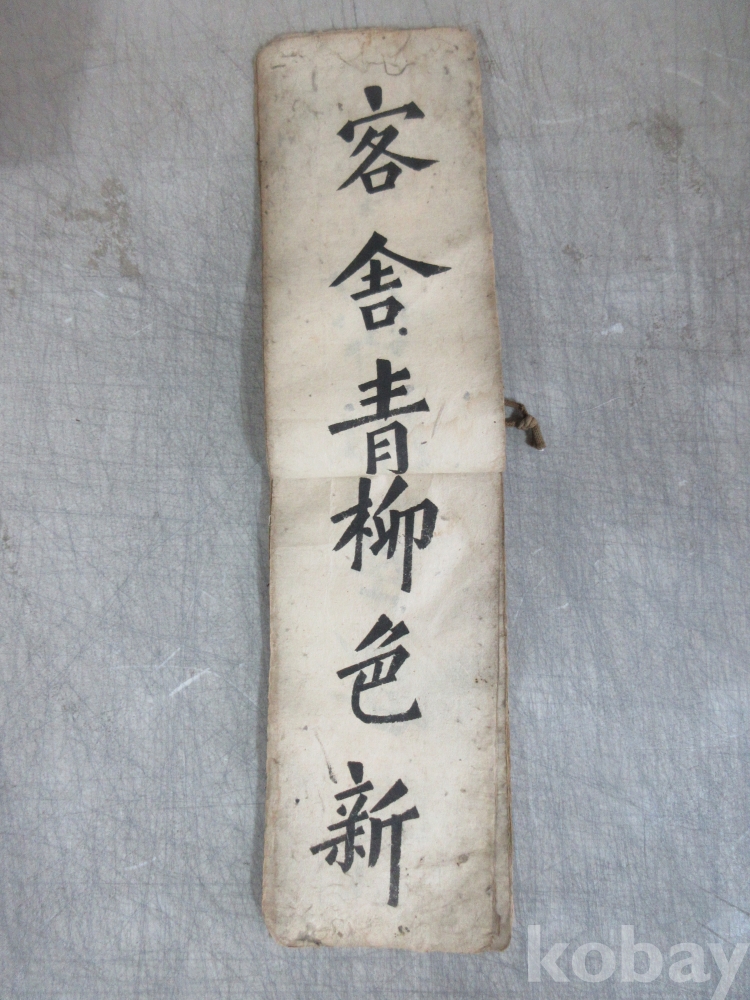 客舎青柳色新
kobay